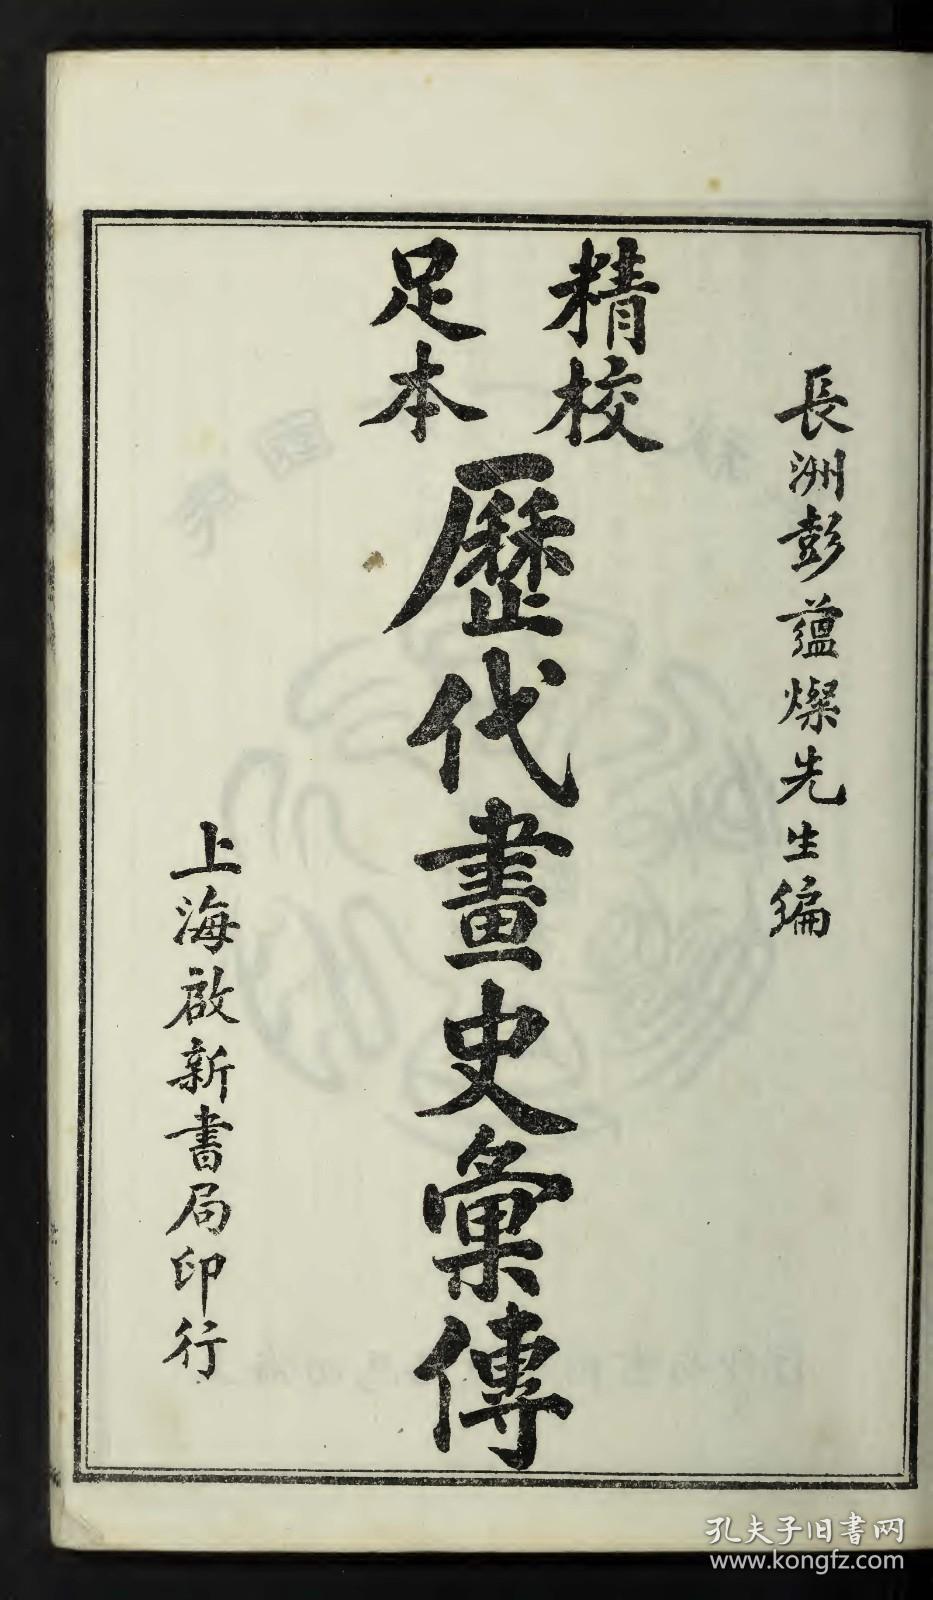 長洲彭蘊燦先生編
精校
足本
歷代畫史彙傳
上海啟新書局印行
孔夫子旧書网
www.kongfz.com